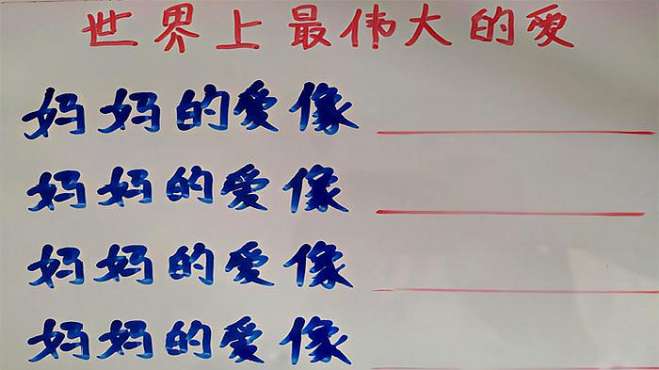 世界上最伟大的爱
妈妈的爱像
妈妈的爱像
妈妈的爱像
妈妈的爱像